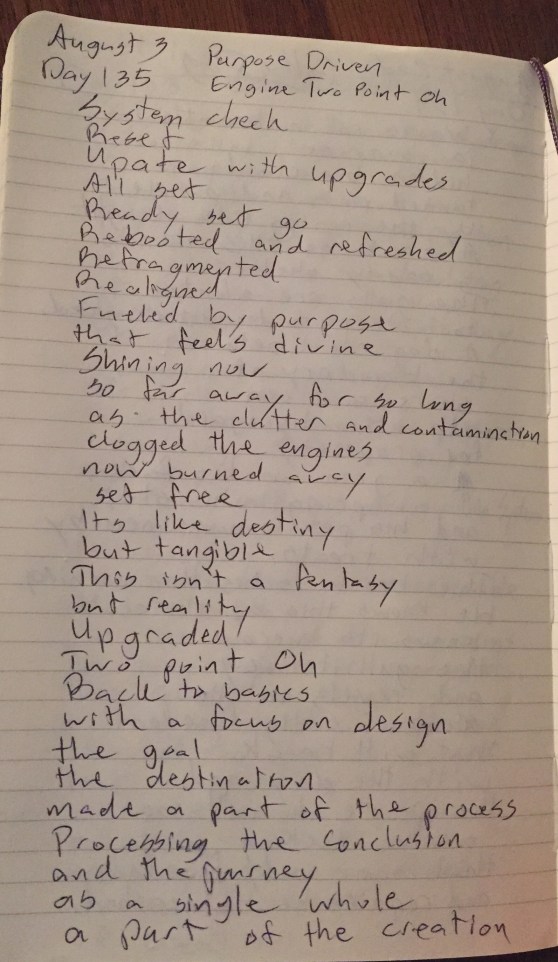 August 3 Purpose Driven
Day 135 Engine Two Point Oh
System check
Reset
Upate with upgrades
All set
Ready set go
Rebooted and refreshed
Refragmented
Realigned
Fueled by purpose
that feels divine
Shining now
so far away for so long
as the clutter and contamination
clogged the engines
now burned away
set free
Its like destiny
but tangible
This isn't a fantasy
but reality
Upgraded
Two point Oh
Back to basics
with a focus on design
the goal
the destination
made a part of the process
Processing the conclusion
and the journey
as a single whole
a part of the creation